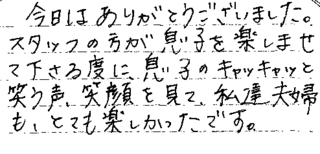 今日はありがとうございました。
スタッフの方が息子を楽しませ
て下さる度に、息子のキャッキャッと
笑う声、笑顔を見て、私達夫婦
も、とても楽しかったです。